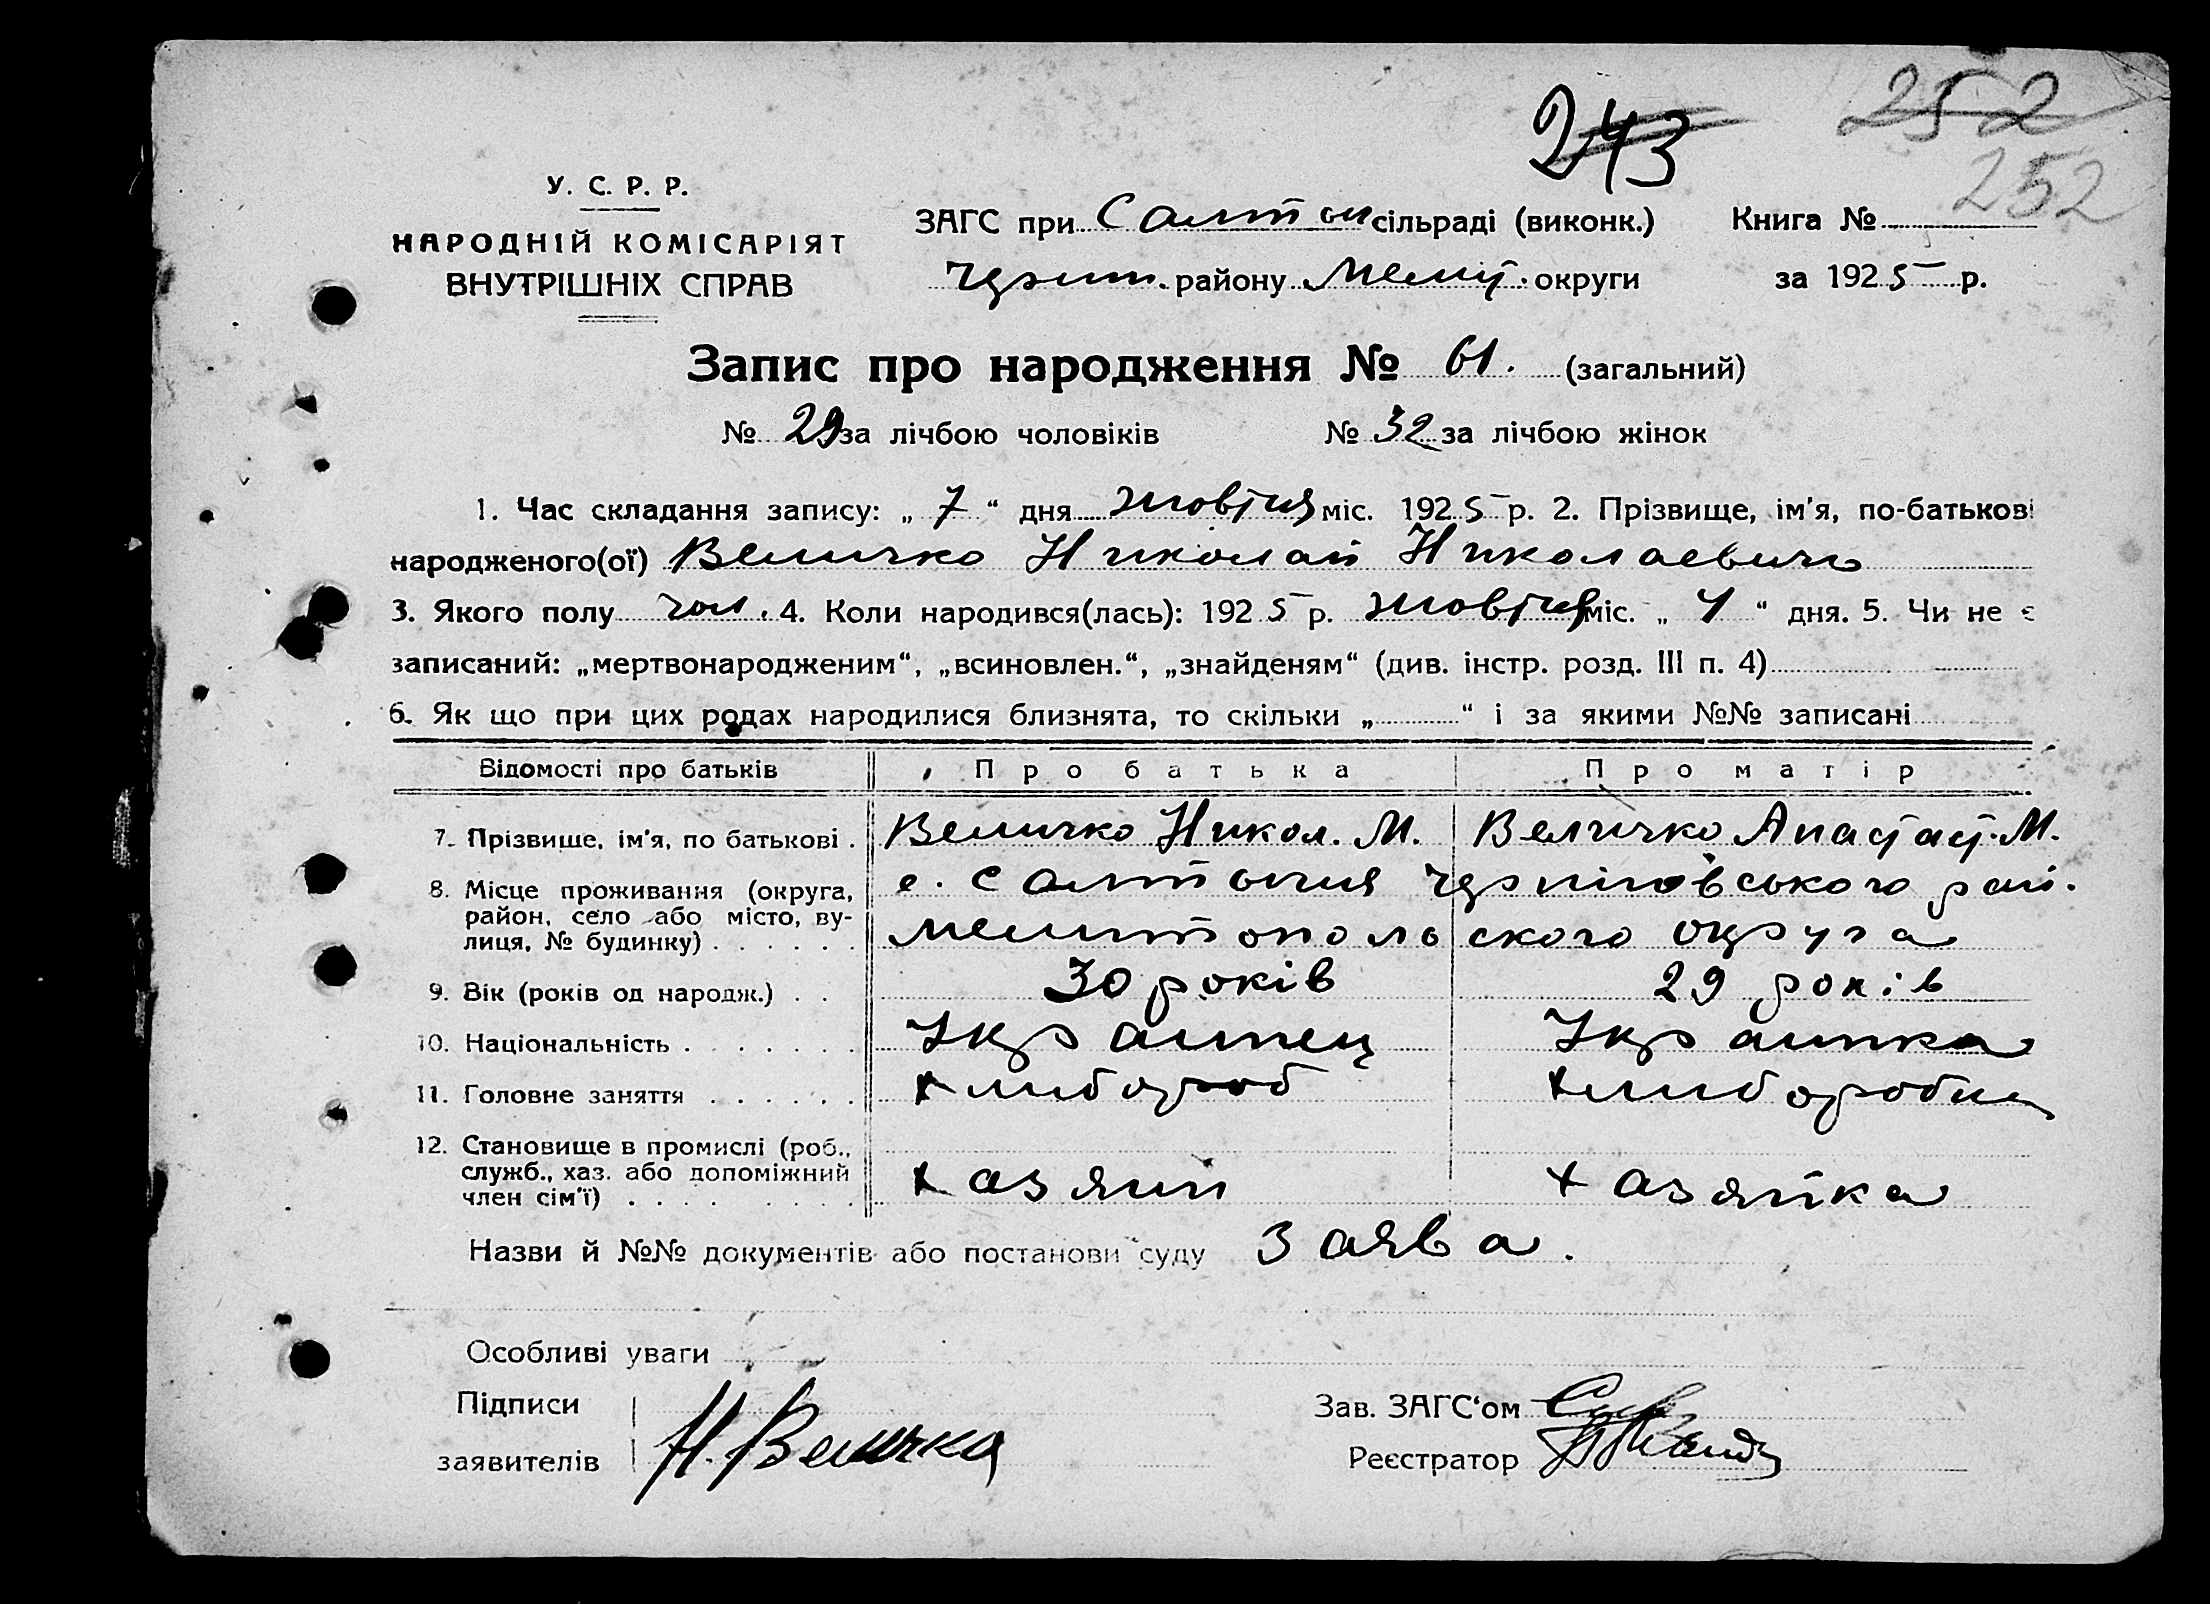 243 252
252
У. С. Р. Р.
НАРОДНІЙ КОМІСАРІЯТ
ВНУТРІШНІХ СПРАВ
ЗАГС при Салтич сільраді (виконк.) Книга №
Черниг. району Меліт. округи за 1925 р.
Запис про народження № 61. (загальний)
№ 29 за лічбою чоловіків № 32 за лічбою жінок
1. Час складання запису: „ 7 “ дня жовтня міс. 1925 р. 2. Прізвище, ім'я, по-батькові
народженого(ої) Величко Николай Николаевичь
3. Якого полу чол. 4. Коли народився(лась): 1925 р. жовтня міс. „ 4 “ дня. 5. Чи не є
записаний: „мертвонародженим“, „всиновлен.“, „знайденям“ (див. інстр. розд. III п. 4)
6. Як що при цих родах народилися близнята, то скільки „ “ і за якими №№ записані
Відомості про батьків Про батька Про матір
7. Прізвище, ім'я, по батькові . Величко Никол. М. Величко Анастас. М.
8. Місце проживання (округа, район, село або місто, вулиця, № будинку) . . . . . . с. Салтичия Чернігівського рай.
Мелитопольского округа
9. Вік (років од народж.) . . 30 років 29 років
10. Національність . . . . . . . Украинец Украинка
11. Головне заняття . . . . . . хлибороб хлиборобка
12. Становище в промислі (роб., служб., хаз. або допоміжний член сім'ї) . . . . . . . . хазяин хазяйка
Назви й №№ документів або постанови суду Заява.
Особливі уваги
Підписи
заявителів Н. Величко
Зав. ЗАГС'ом
Реєстратор